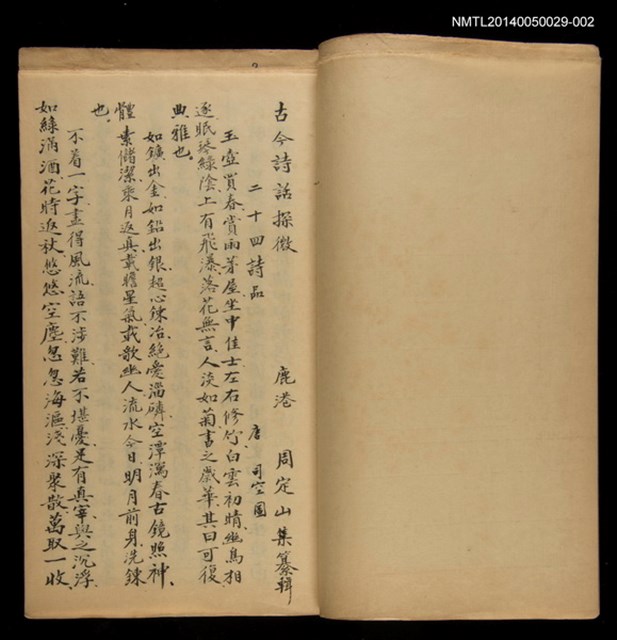 NMTL20140050029-002
古今詩話探微 鹿港 周定山集纂輯
二十四詩品 唐 司空圖
玉壺買春賞雨茅屋坐中佳士左右修竹白雲初晴幽鳥相
逐眠琴綠陰上有飛瀑落花無言人淡如菊書之歲華其曰可復
典雅也。
如鑛出金如鉛出銀超心鍊冶絕愛淄磷空潭瀉春古鏡照神
體素儲潔乘月返真載瞻星氣載歌幽人流水今日明月前身洗鍊
也。
不着一字盡得風流語不涉難若不堪憂是有真宰與之沉浮
如綠滿酒花時返秋悠悠空塵忽忽海漚淺深聚散萬取一收